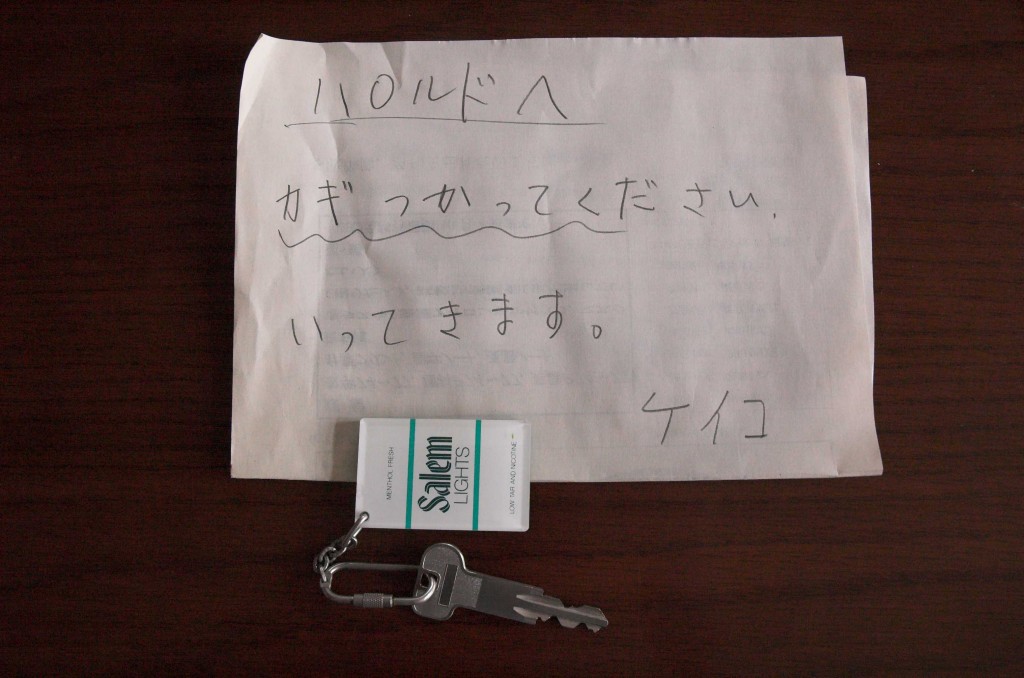 ハロルドへ
カギつかってください.
いってきます。
ケイコ
MENTHOL FRESH
Salem
LIGHTS
LOW TAR AND NICOTINE